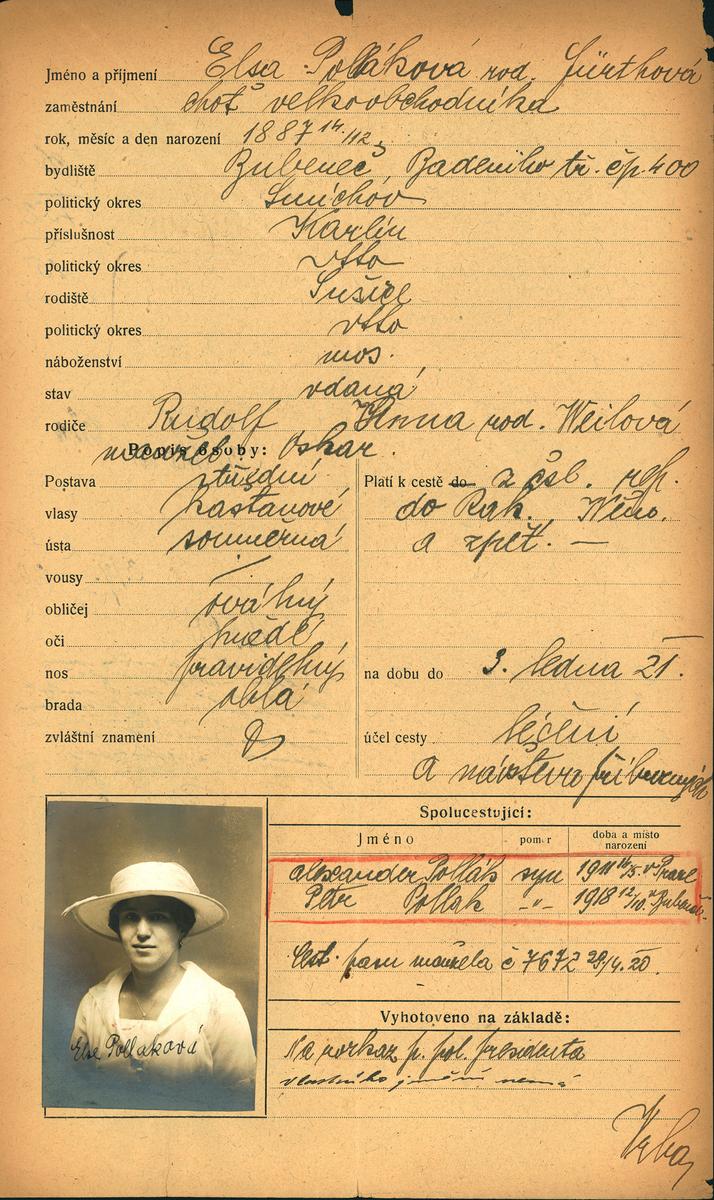 Jméno a příjmení Elsa Polláková rod. Fürthová
zaměstnání choť velkoobchodníka
rok, měsíc a den narození 1887 14/12
bydliště Bubeneč, Badeniho tř. čp. 400
politický okres Smíchov
příslušnost Karlín
politický okres dtto
rodiště Sušice
politický okres dtto
náboženství mos.
stav vdaná
rodiče Rudolf Anna rod. Weilová
manžel Oskar.
Popis osoby:
Postava střední
vlasy kaštanové
ústa souměrná
vousy —
obličej oválný
oči hnědé
nos pravidelný
brada oblá
zvláštní znamení
Platí k cestě do z čsl. rep.
do Rak. Něm.
a zpět. —
na dobu do 3. ledna 21.
účel cesty léčení
a návštěva příbuzných
Spolucestující:
Jméno poměr doba a místo narození
Alexander Pollák syn 1911 16/5. v Praze
Petr Pollak -"- 1918 12/10. v Bubenči
Cest. pasu manžela č 7672 29/4. 20.
Vyhotoveno na základě:
Na rozkaz p. pol. presidenta
vlastního jmění nemá
Elsa Polláková